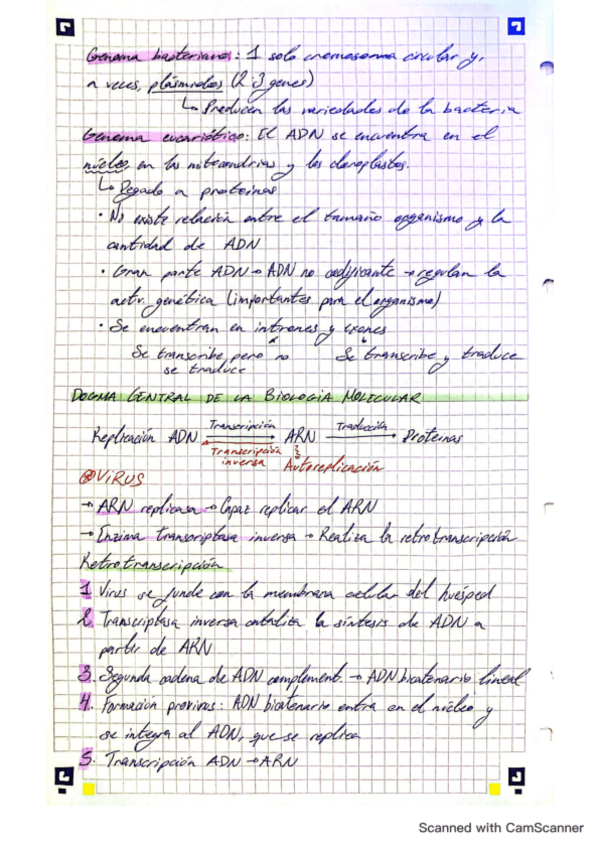 Genoma bacteriano: 1 solo cromosoma circular y,
a veces, plásmidos (2 ó 3 genes)
↳ Producen las variedades de la bacteria
Genoma eucariótico: El ADN se encuentra en el
núcleo, en las mitocondrias y los cloroplastos.
↳ Pegado a proteínas
· No existe relación entre el tamaño organismo y la
cantidad de ADN
· Gran parte ADN → ADN no codificante → regulan la
activ. genética (importantes para el organismo)
· Se encuentran en intrones y exones
Se transcribe pero no se traduce
Se transcribe y traduce
DOGMA CENTRAL DE LA BIOLOGÍA MOLECULAR
Replicación ADN Transcripción → ARN Traducción → Proteínas
Transcripción inversa
Autoreplicación
VIRUS
→ ARN replicasa → Capaz replicar el ARN
→ Enzima transcriptasa inversa → Realiza la retrotranscripción
Retrotranscripción
1. Virus se funde con la membrana celular del huésped
2. Transcriptasa inversa cataliza la síntesis de ADN a
partir de ARN
3. Segunda cadena de ADN complement. → ADN bicatenario lineal
4. Formación provirus: ADN bicatenario entra en el núcleo y
se integra al ADN, que se replica
5. Transcripción ADN → ARN
Scanned with CamScanner